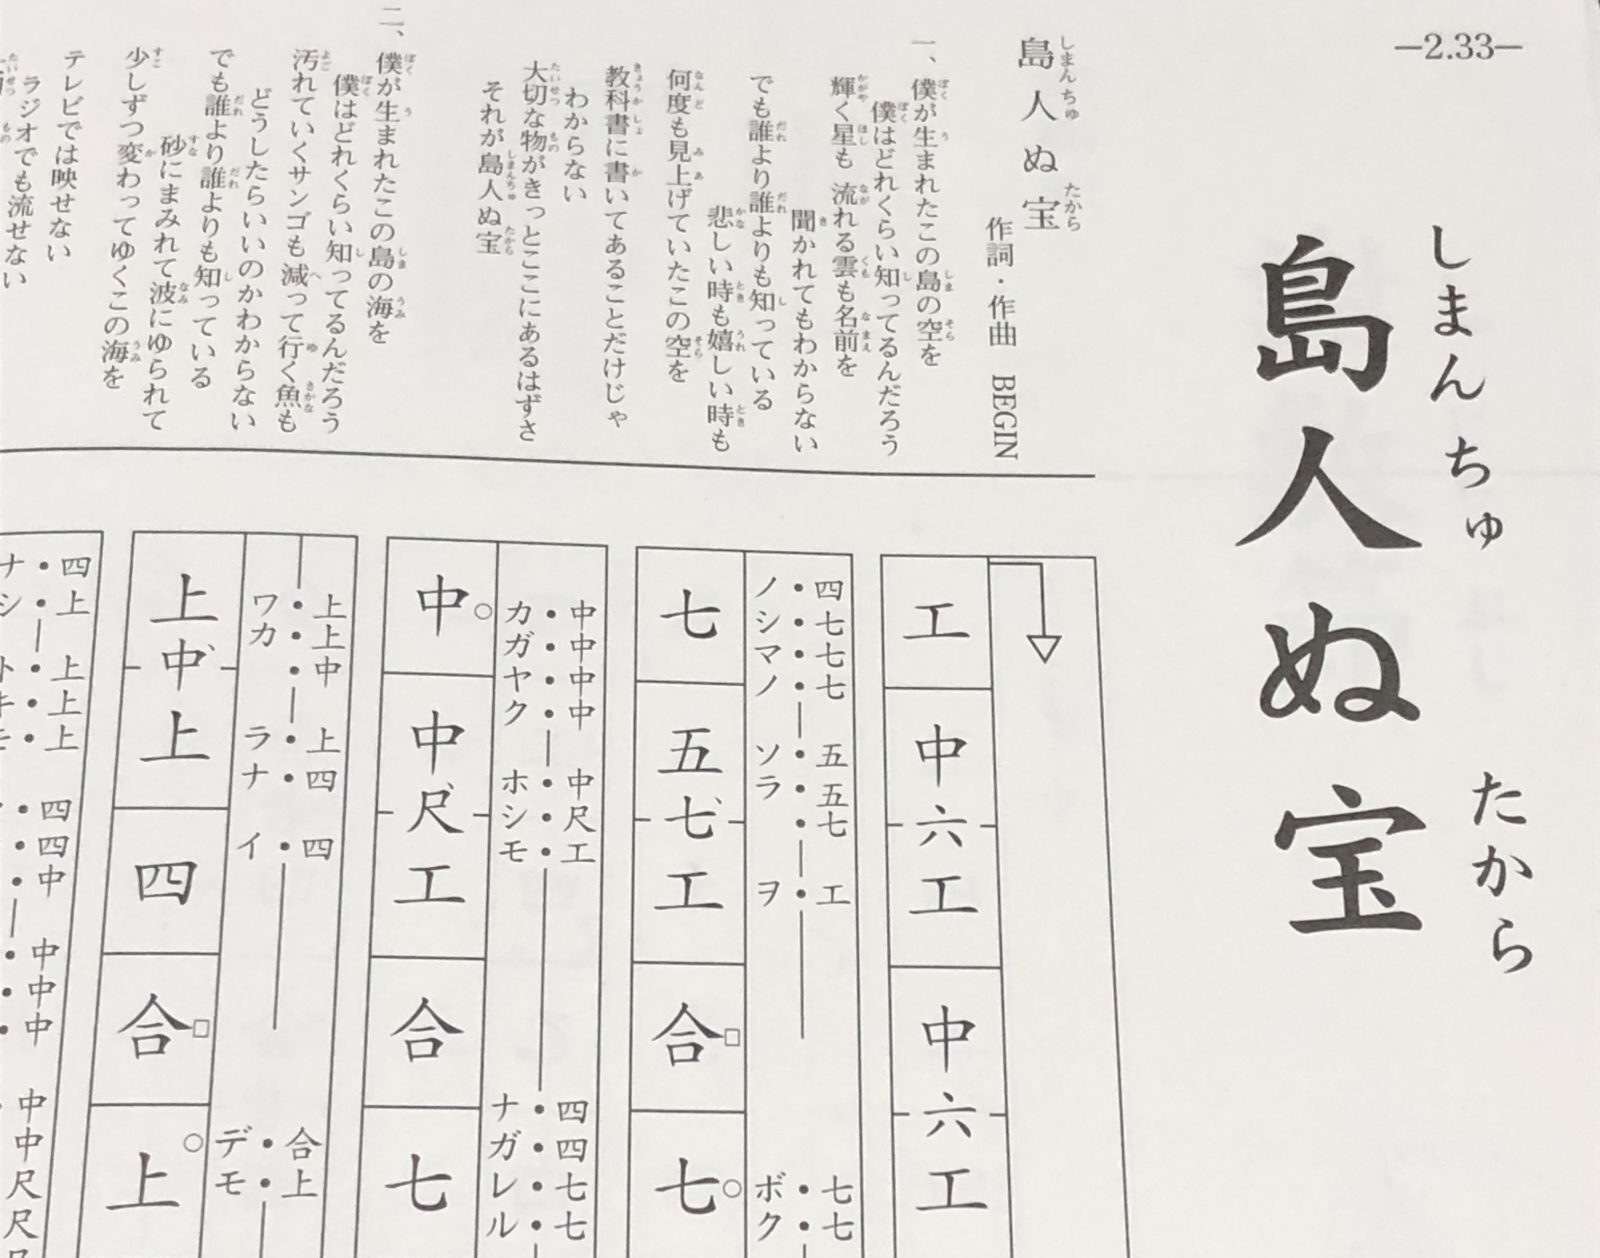 —2.33—
島人ぬ宝
しまんちゅ たから
島人ぬ宝
しまんちゅ たから
作詞・作曲 BEGIN
一、僕が生まれたこの島の空を
僕はどれくらい知ってるんだろう
輝く星も 流れる雲も名前を
聞かれてもわからない
でも誰より誰よりも知っている
悲しい時も嬉しい時も
何度も見上げていたこの空を
教科書に書いてあることだけじゃ
わからない
大切な物がきっとここにあるはずさ
それが島人ぬ宝
二、僕が生まれたこの島の海を
僕はどれくらい知ってるんだろう
汚れていくサンゴも 減って行く魚も
どうしたらいいのかわからない
でも誰より誰よりも知っている
砂にまみれて波にゆられて
少しずつ変わってゆくこの海を
テレビでは映せない
ラジオでも流せない
工 中 六 工 中 六 工
四七七七 五五七 工 七七
ノシマノ ソラ ヲ ボク
七 五 七 工 合 七
中中中中 中尺工 四四七七
カガヤク ホシモ ナガレル
中 中 尺 工 合 七
上上中 上四 四 合上
ワカ ラナ イ デモ
上 中 上 四 合 上
四上 上上上 四四中 中中中 中中尺尺